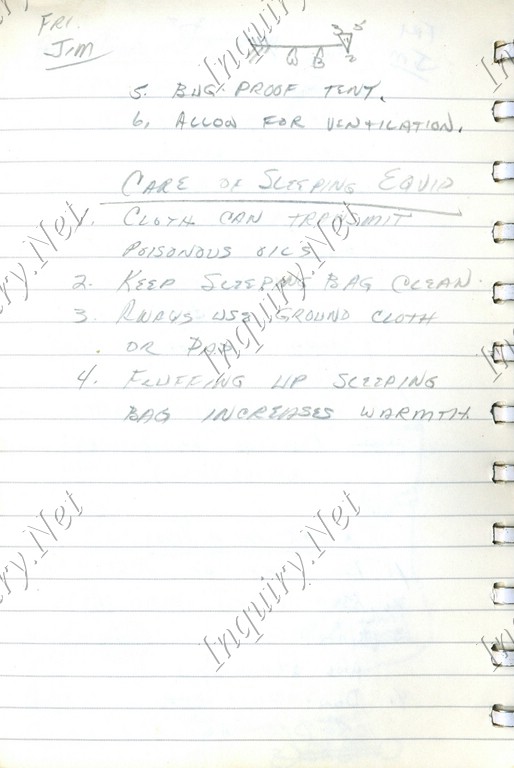 FRI.
JIM
A B 2
5. BUG PROOF TENT.
6. ALLOW FOR VENTILATION.
CARE OF SLEEPING EQUIP
1. CLOTH CAN TRANSMIT
POISONOUS OILS
2. KEEP SLEEPING BAG CLEAN.
3. ALWAYS USE GROUND CLOTH
OR PAD
4. FLUFFING UP SLEEPING
BAG INCREASES WARMTH
Inquiry.Net
Inquiry.Net
Inquiry.Net
Inquiry.Net
Inquiry.Net